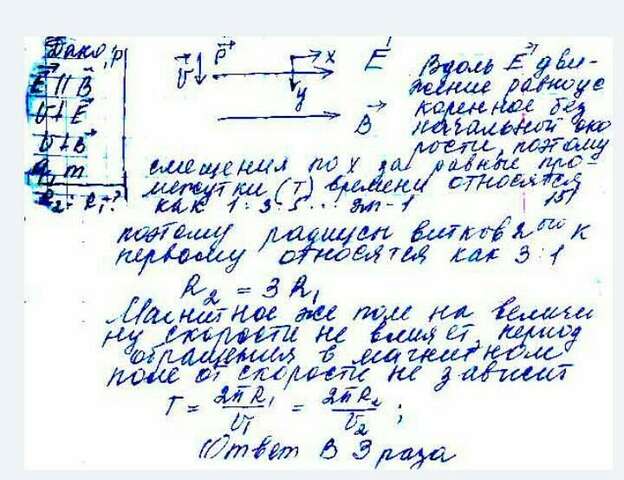 Дано, p
E ∥ B
v ⊥ E
v ⊥ B
q, m
R₂ : R₁ - ?
v p x E
y
B
Вдоль E дви-
жение равноус
коренное без
начальной ско
рости, поэтому
смещения по x за равные про-
межутки (T) времени относятся
как 1 : 3 : 5 ... 2n-1
поэтому радиусы витков 2ого к
первому относятся как 3 : 1
R₂ = 3R₁
Магнитное же поле на величи
ну скорости не влияет, период
обращения в магнитном
поле от скорости не зависит
T = 2πR₁/v₁ = 2πR₂/v₂ ;
Ответ в 3 раза